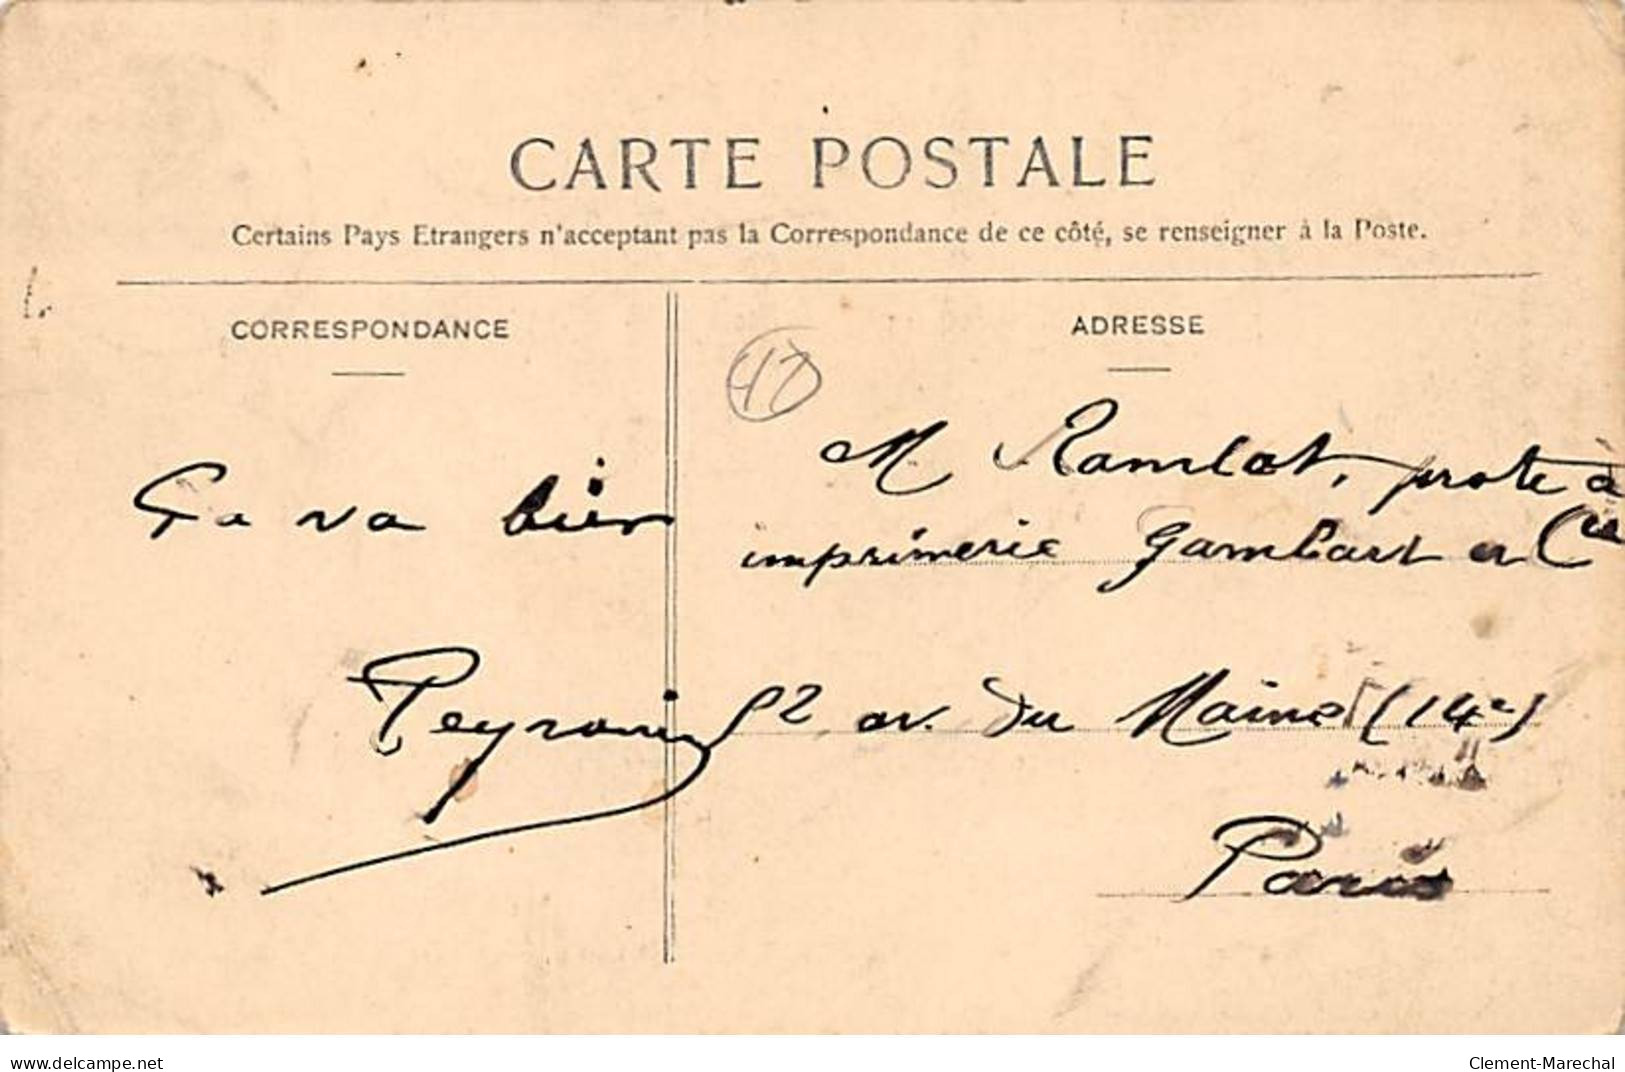 CARTE POSTALE
Certains Pays Etrangers n'acceptent pas la Correspondance de ce côté, se renseigner à la Poste.
CORRESPONDANCE
Ça va bien
ADRESSE
M Ramlot, prote à
imprimerie Gambart et Cie
52 av. du Maine (14e)
Paris
delcampe.net
Clement-Marechal